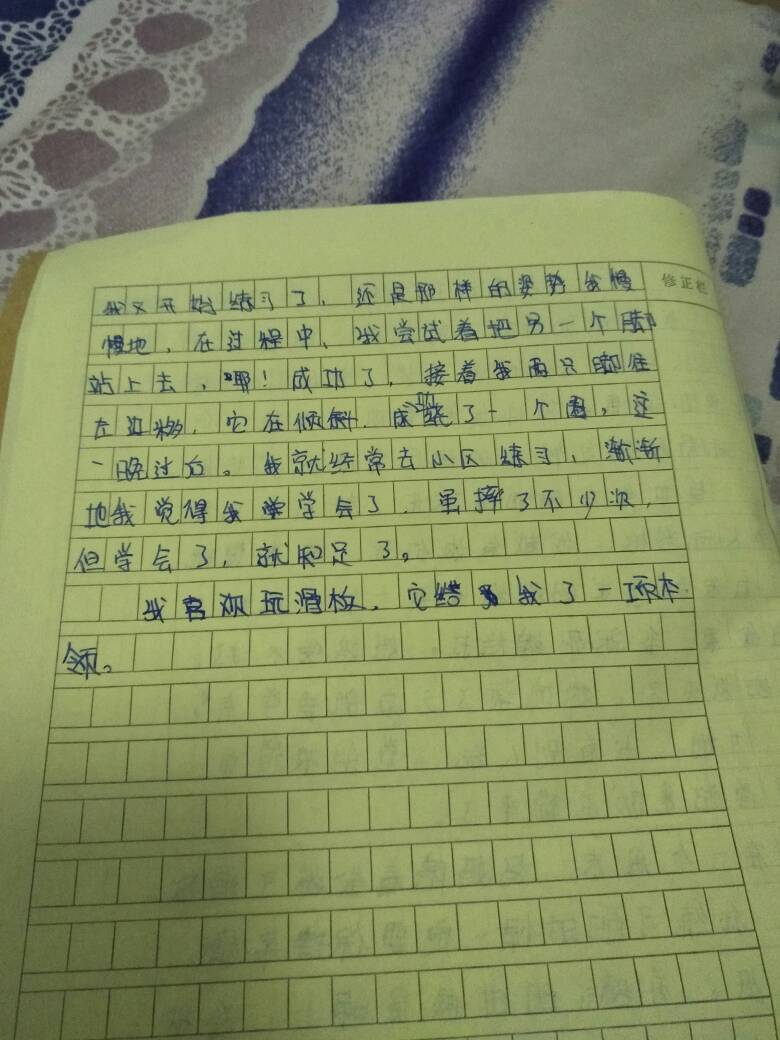 修正栏
我又开始练习了，还是那样的姿势我慢
慢地，在过程中，我尝试着把另一个脚
站上去，耶！成功了，接着我两只脚往
左边移，它在倾斜，成绕了一个圈，这
一路过后。我就经常去小区练习，渐渐
地我觉得我学会了，虽摔了不少次，
但学会了，就知足了。
我喜欢玩滑板，它给我了一项本
领。